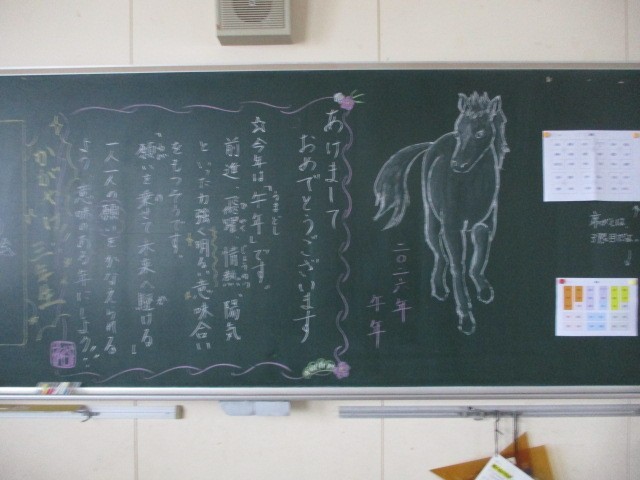 あけまして
おめでとうございます
☆今年は「午年」です。
前進、飛躍、情熱、陽気
といった力強く明るい意味合い
をもつそうです。
「願いを乗せて未来へ駆ける」
一人一人の願いをかなえられる
よう意味のある年にしよう!!
かがやけ 三年生
二〇二六年
午年